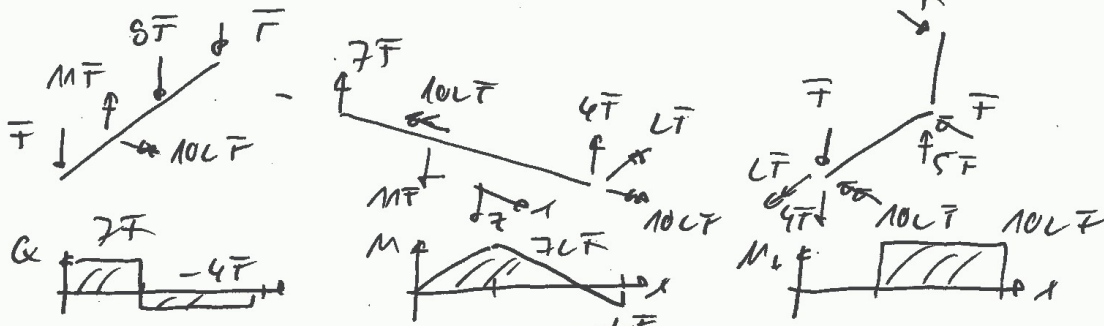 8F̅ F̅
11F̅
F̅ 10LF̅
7F̅
10LF̅
4F̅ LF̅
11F̅ z x 10LF̅
F̅ F̅
LF̅ 5F̅
4F̅ 10LF̅
Q 7F̅ -4F̅
M 7LF̅ x
M 10LF̅ x